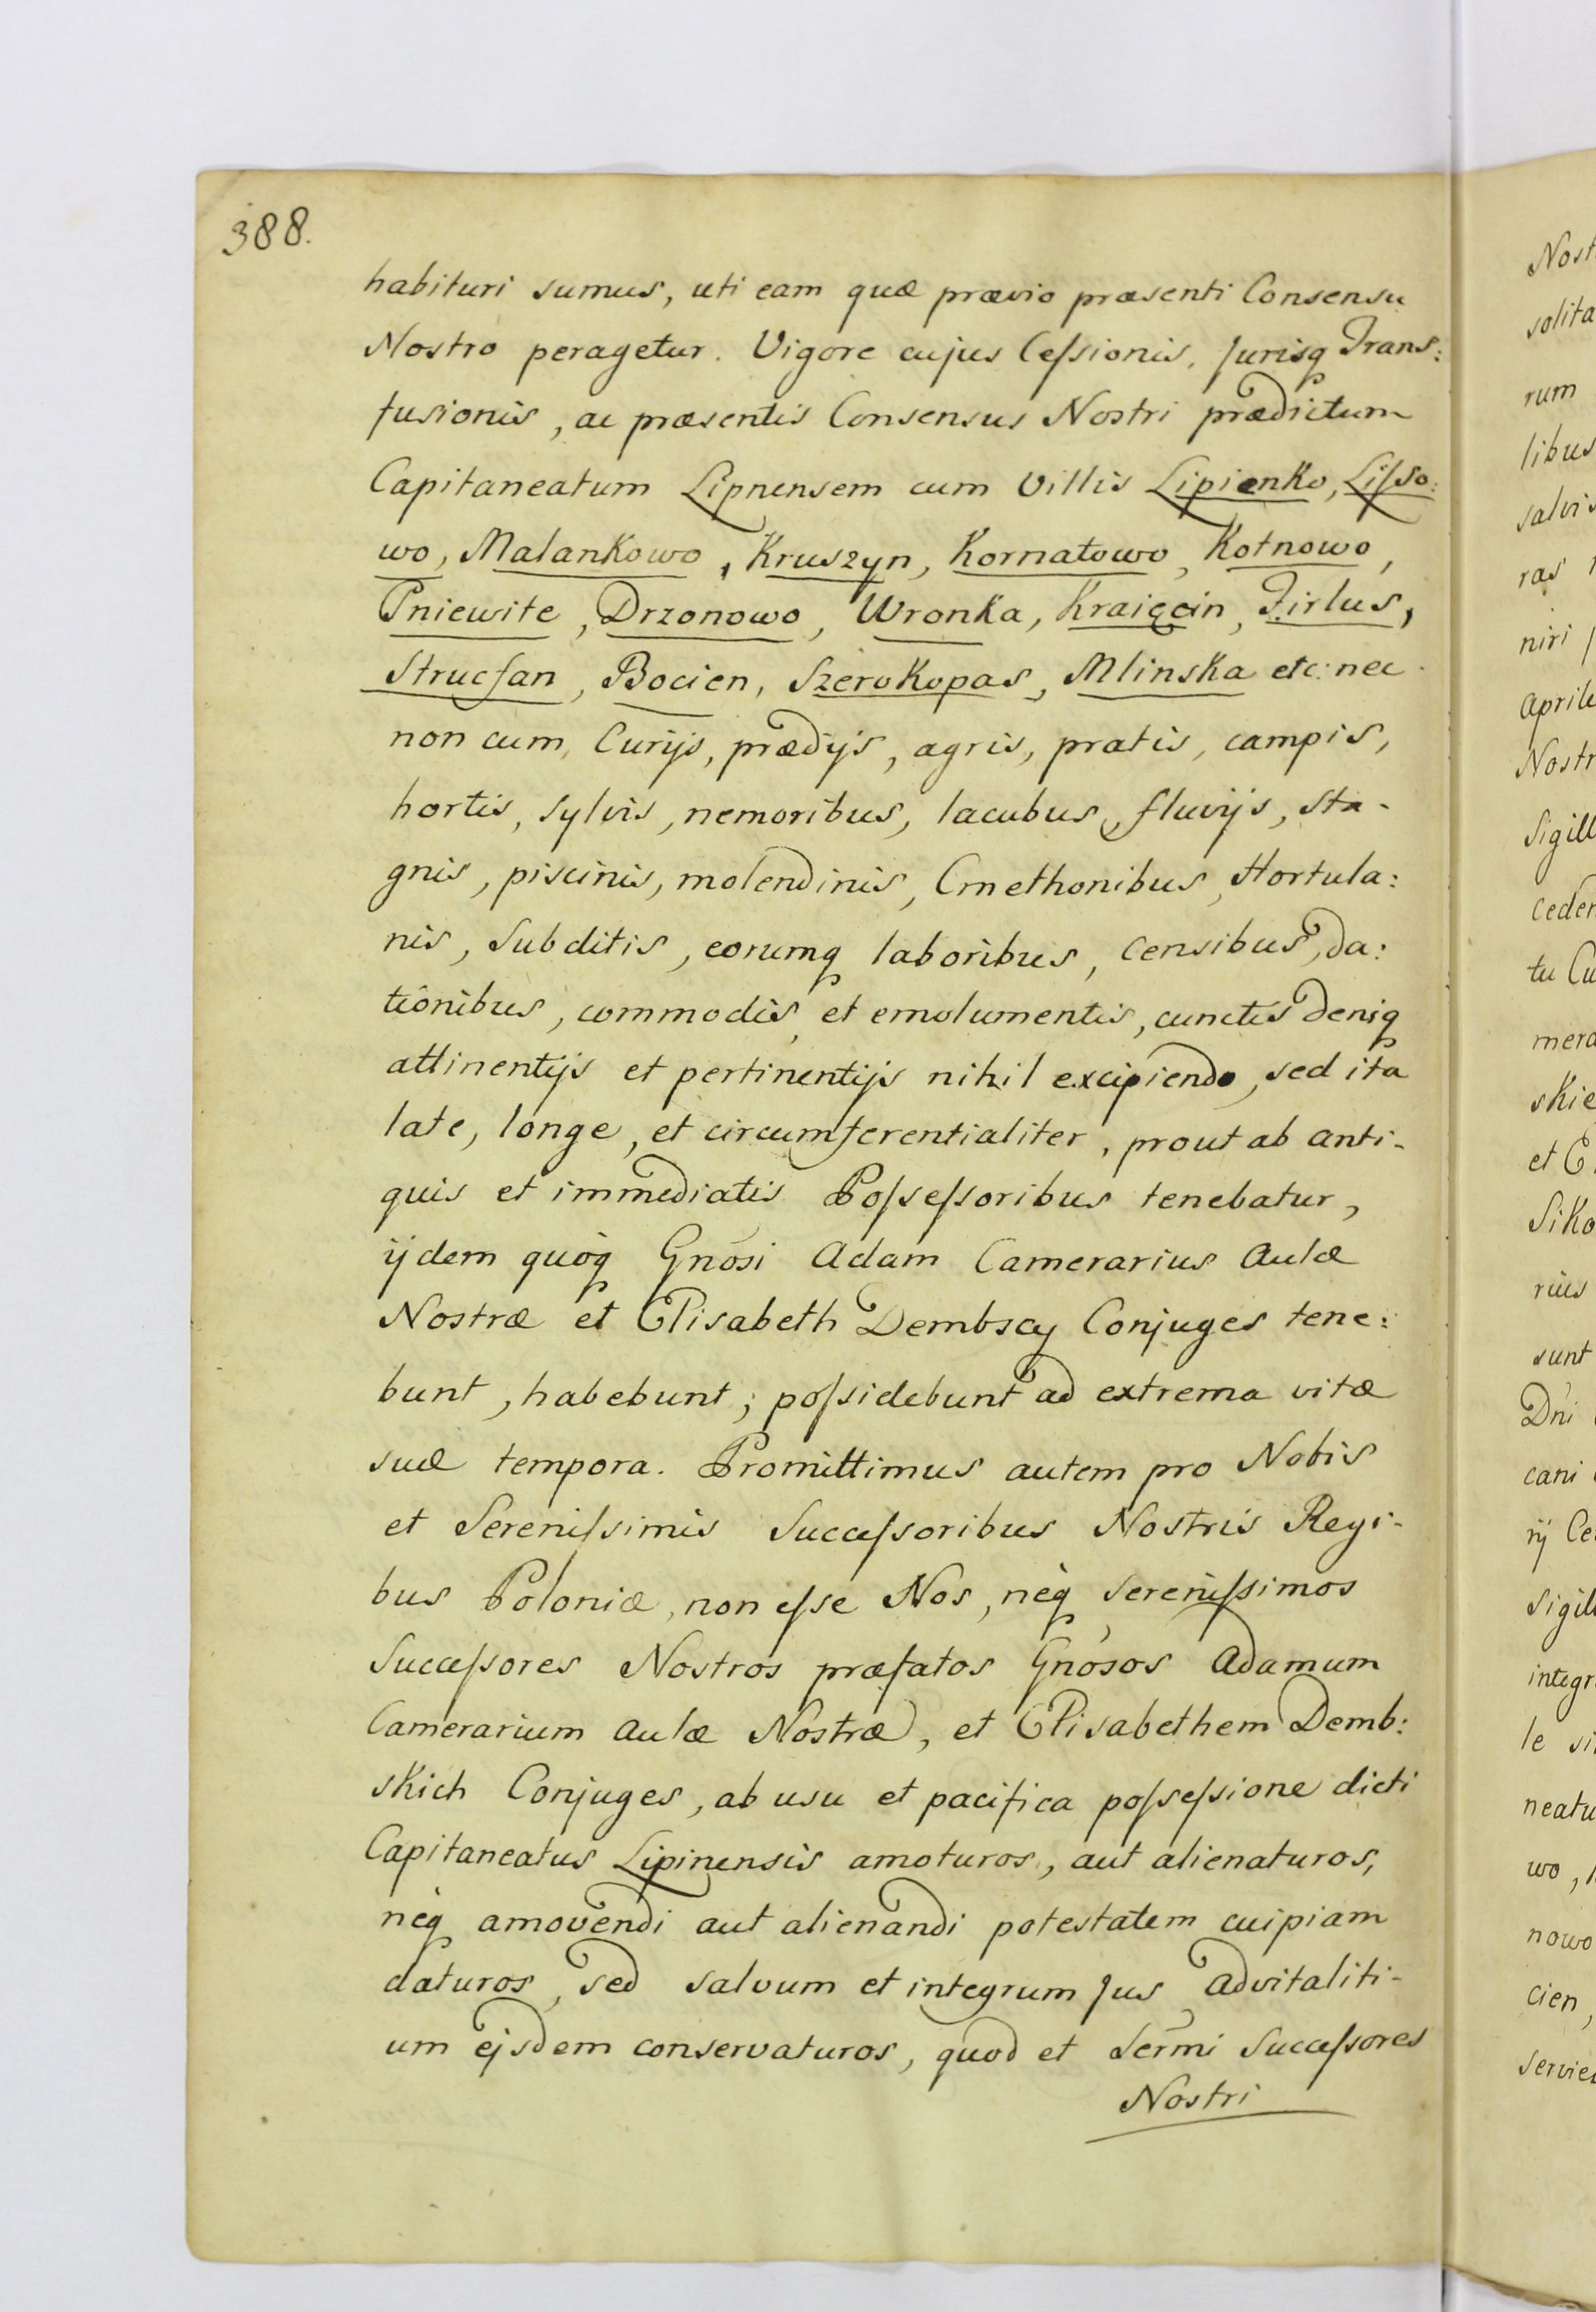 388.
habituri sumus, uti eam quæ prævio præsenti Consensu
Nostro peragetur. Vigore cujus Ceſsionis, Jurisq Trans:
fusionis, ac præsentis Consensus Nostri prædictum
Capitaneatum Lipnensem cum Villis Lipienko, Liſso:
wo, Malankowo, Kruszyn, Kornatowo, Kotnowo,
Pniewite, Drzonowo, Wronka, Kraięcin, Firlus,
Strucfan, Bocien, Szerokopas, Mlinska etc: nec
non cum Curijs, prædijs, agris, pratis, campis,
hortis, sylvis, nemoribus, lacubus, fluvijs, sta-
gnis, piscinis, molendinis, Cmethonibus, Hortula:
nis, Subditis, eorumq laboribus, censibus, da:
tionibus, commodis, et emolumentis, cunctis deniq
attinentijs et pertinentijs nihil excipiendo, sed ita
late, longe, et circumferentialiter, prout ab anti-
quis et immediatis Poſseſsoribus tenebatur,
ijdem quoq Gnosi Adam Camerarius Aulæ
Nostræ et Elisabeth Dembscy Conjuges tene:
bunt, habebunt, poſsidebunt ad extrema vitæ
suæ tempora. Promittimus autem pro Nobis
et Sereniſsimis Succeſsoribus Nostris Regi-
bus Poloniæ, non eſse Nos, neq Sereniſsimos
Succeſsores Nostros præfatos Gnosos Adamum
Camerarium Aulæ Nostræ, et Elisabethem Demb:
skich Conjuges, ab usu et pacifica poſseſsione dicti
Capitaneatus Lipinensis amoturos, aut alienaturos,
neq amovendi aut alienandi potestatem cuipiam
daturos, sed salvum et integrum Jus Advitaliti-
um ejsdem conservaturos, quod et Sermi Succeſsores
Nostri
Nost
solita
rum
libus
salvis
ras
niri
Aprile
Nostr
Sigill
ceden
tu Cu
mera
skie
et E
Siko
rius
sunt
Dni
cani
ij Ce
Sigill
integr
le si
neatu
wo,
nowo
cien,